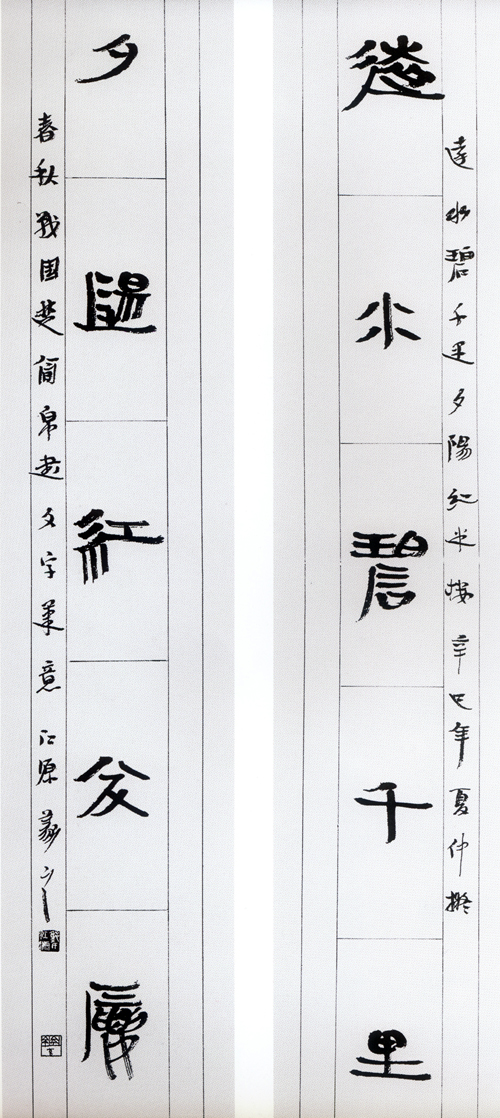 遠水碧千里夕陽紅半樓辛巳年夏仲擬
遠水碧千里
夕陽紅半樓
春秋戰国楚簡帛書文字筆意江原